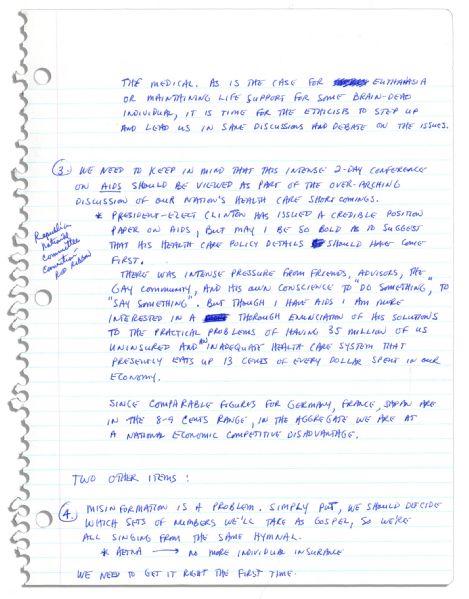 THE MEDICAL. AS IS THE CASE FOR EUTHANASIA
OR MAINTAINING LIFE SUPPORT FOR SOME BRAIN-DEAD
INDIVIDUAL, IT IS TIME FOR THE ETHICISTS TO STEP UP
AND LEAD US IN SANE DISCUSSIONS AND DEBATE ON THE ISSUES.
3. WE NEED TO KEEP IN MIND THAT THIS INTENSE 2-DAY CONFERENCE
ON AIDS SHOULD BE VIEWED AS PART OF THE OVER-ARCHING
DISCUSSION OF OUR NATION'S HEALTH CARE SHORTCOMINGS.
* PRESIDENT-ELECT CLINTON HAS ISSUED A CREDIBLE POSITION
PAPER ON AIDS, BUT MAY I BE SO BOLD AS TO SUGGEST
THAT HIS HEALTH CARE POLICY DETAILS SHOULD HAVE COME
FIRST.
Republican
National
Committee
Convention-
RED RIBBON
THERE WAS INTENSE PRESSURE FROM FRIENDS, ADVISORS, THE
GAY COMMUNITY, AND HIS OWN CONSCIENCE TO "DO SOMETHING", TO
"SAY SOMETHING". BUT THOUGH I HAVE AIDS I AM MORE
INTERESTED IN A THOROUGH ENUNCIATION OF HIS SOLUTIONS
TO THE PRACTICAL PROBLEMS OF HAVING 35 MILLION OF US
UNINSURED AND AN INADEQUATE HEALTH CARE SYSTEM THAT
PRESENTLY EATS UP 13 CENTS OF EVERY DOLLAR SPENT IN OUR
ECONOMY.
SINCE COMPARABLE FIGURES FOR GERMANY, FRANCE, JAPAN ARE
IN THE 8-9 CENTS RANGE, IN THE AGGREGATE WE ARE AT
A NATIONAL ECONOMIC COMPETITIVE DISADVANTAGE.
TWO OTHER ITEMS:
4. MISINFORMATION IS A PROBLEM. SIMPLY PUT, WE SHOULD DECIDE
WHICH SETS OF NUMBERS WE'LL TAKE AS GOSPEL, SO WE'RE
ALL SINGING FROM THE SAME HYMNAL.
* AETNA → NO MORE INDIVIDUAL INSURANCE
WE NEED TO GET IT RIGHT THE FIRST TIME.